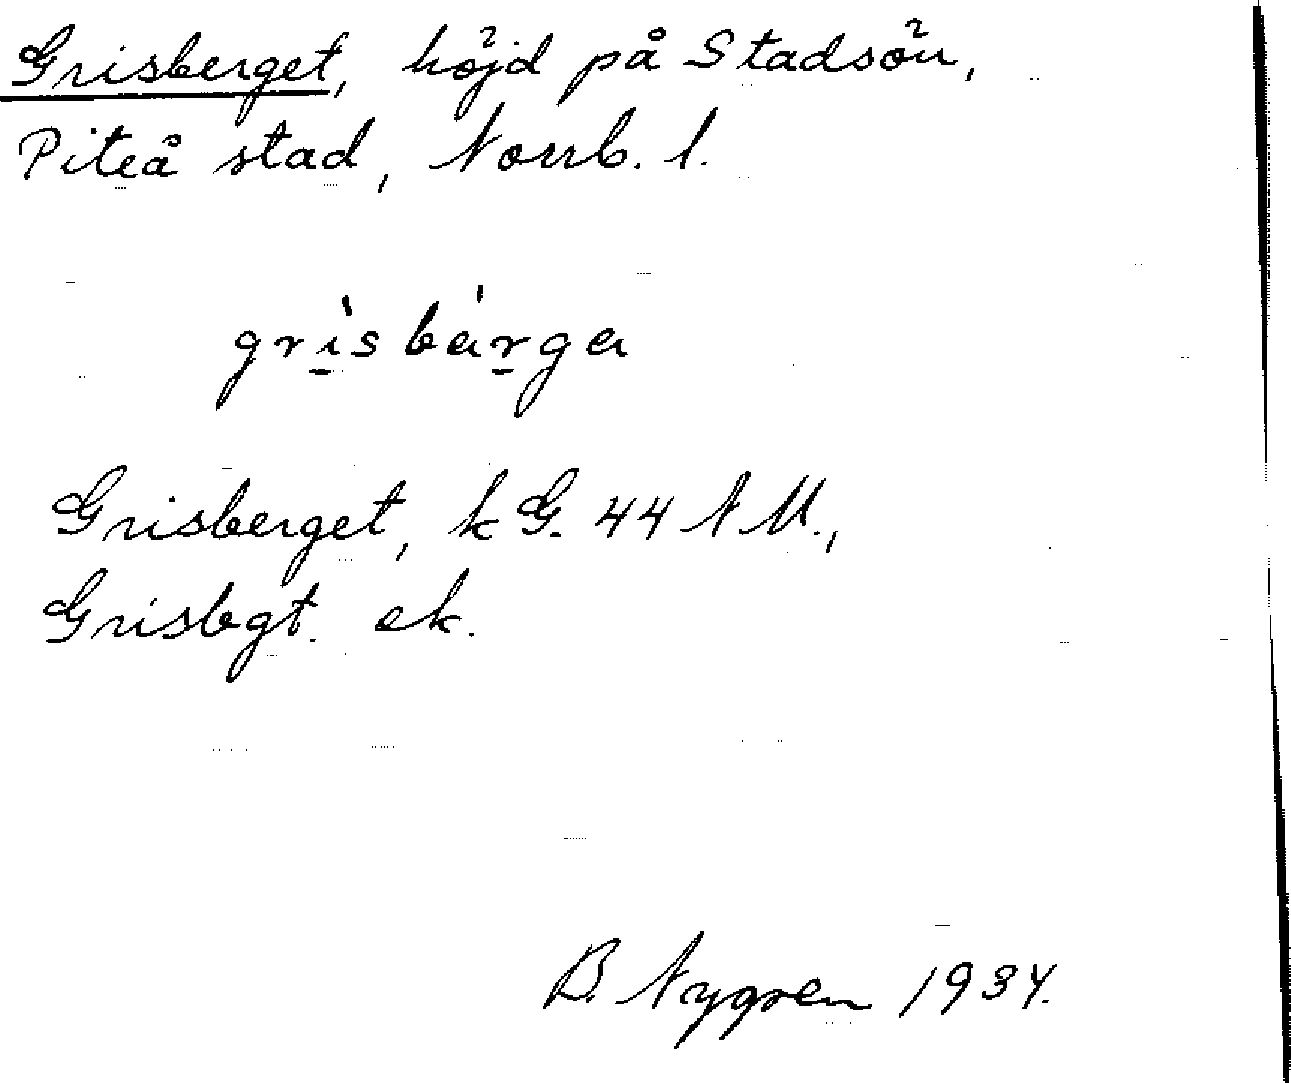 Grisberget, höjd på Stadsön,
Piteå stad, Norrb. l.
gri̠sbar̠ga
Grisberget, k G. 44 N M.,
Grisbgt. ek.
B. Nygren 1934.